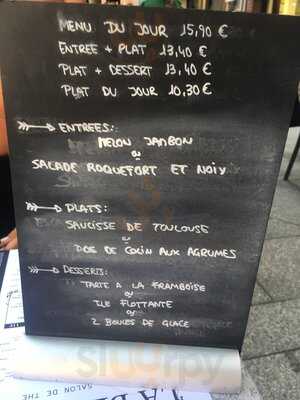 MENU DU JOUR 15,90 €
ENTREE + PLAT 13,40 €
PLAT + DESSERT 13,40 €
PLAT DU JOUR 10,30 €
ENTREES:
MELON JAMBON
ou
SALADE ROQUEFORT ET NOIX
PLATS:
SAUCISSE DE TOULOUSE
ou
DOS DE COLIN AUX AGRUMES
DESSERTS:
TARTE A LA FRAMBOISE
ou
ILE FLOTTANTE
ou
2 BOULES DE GLACE
SALON DE THE